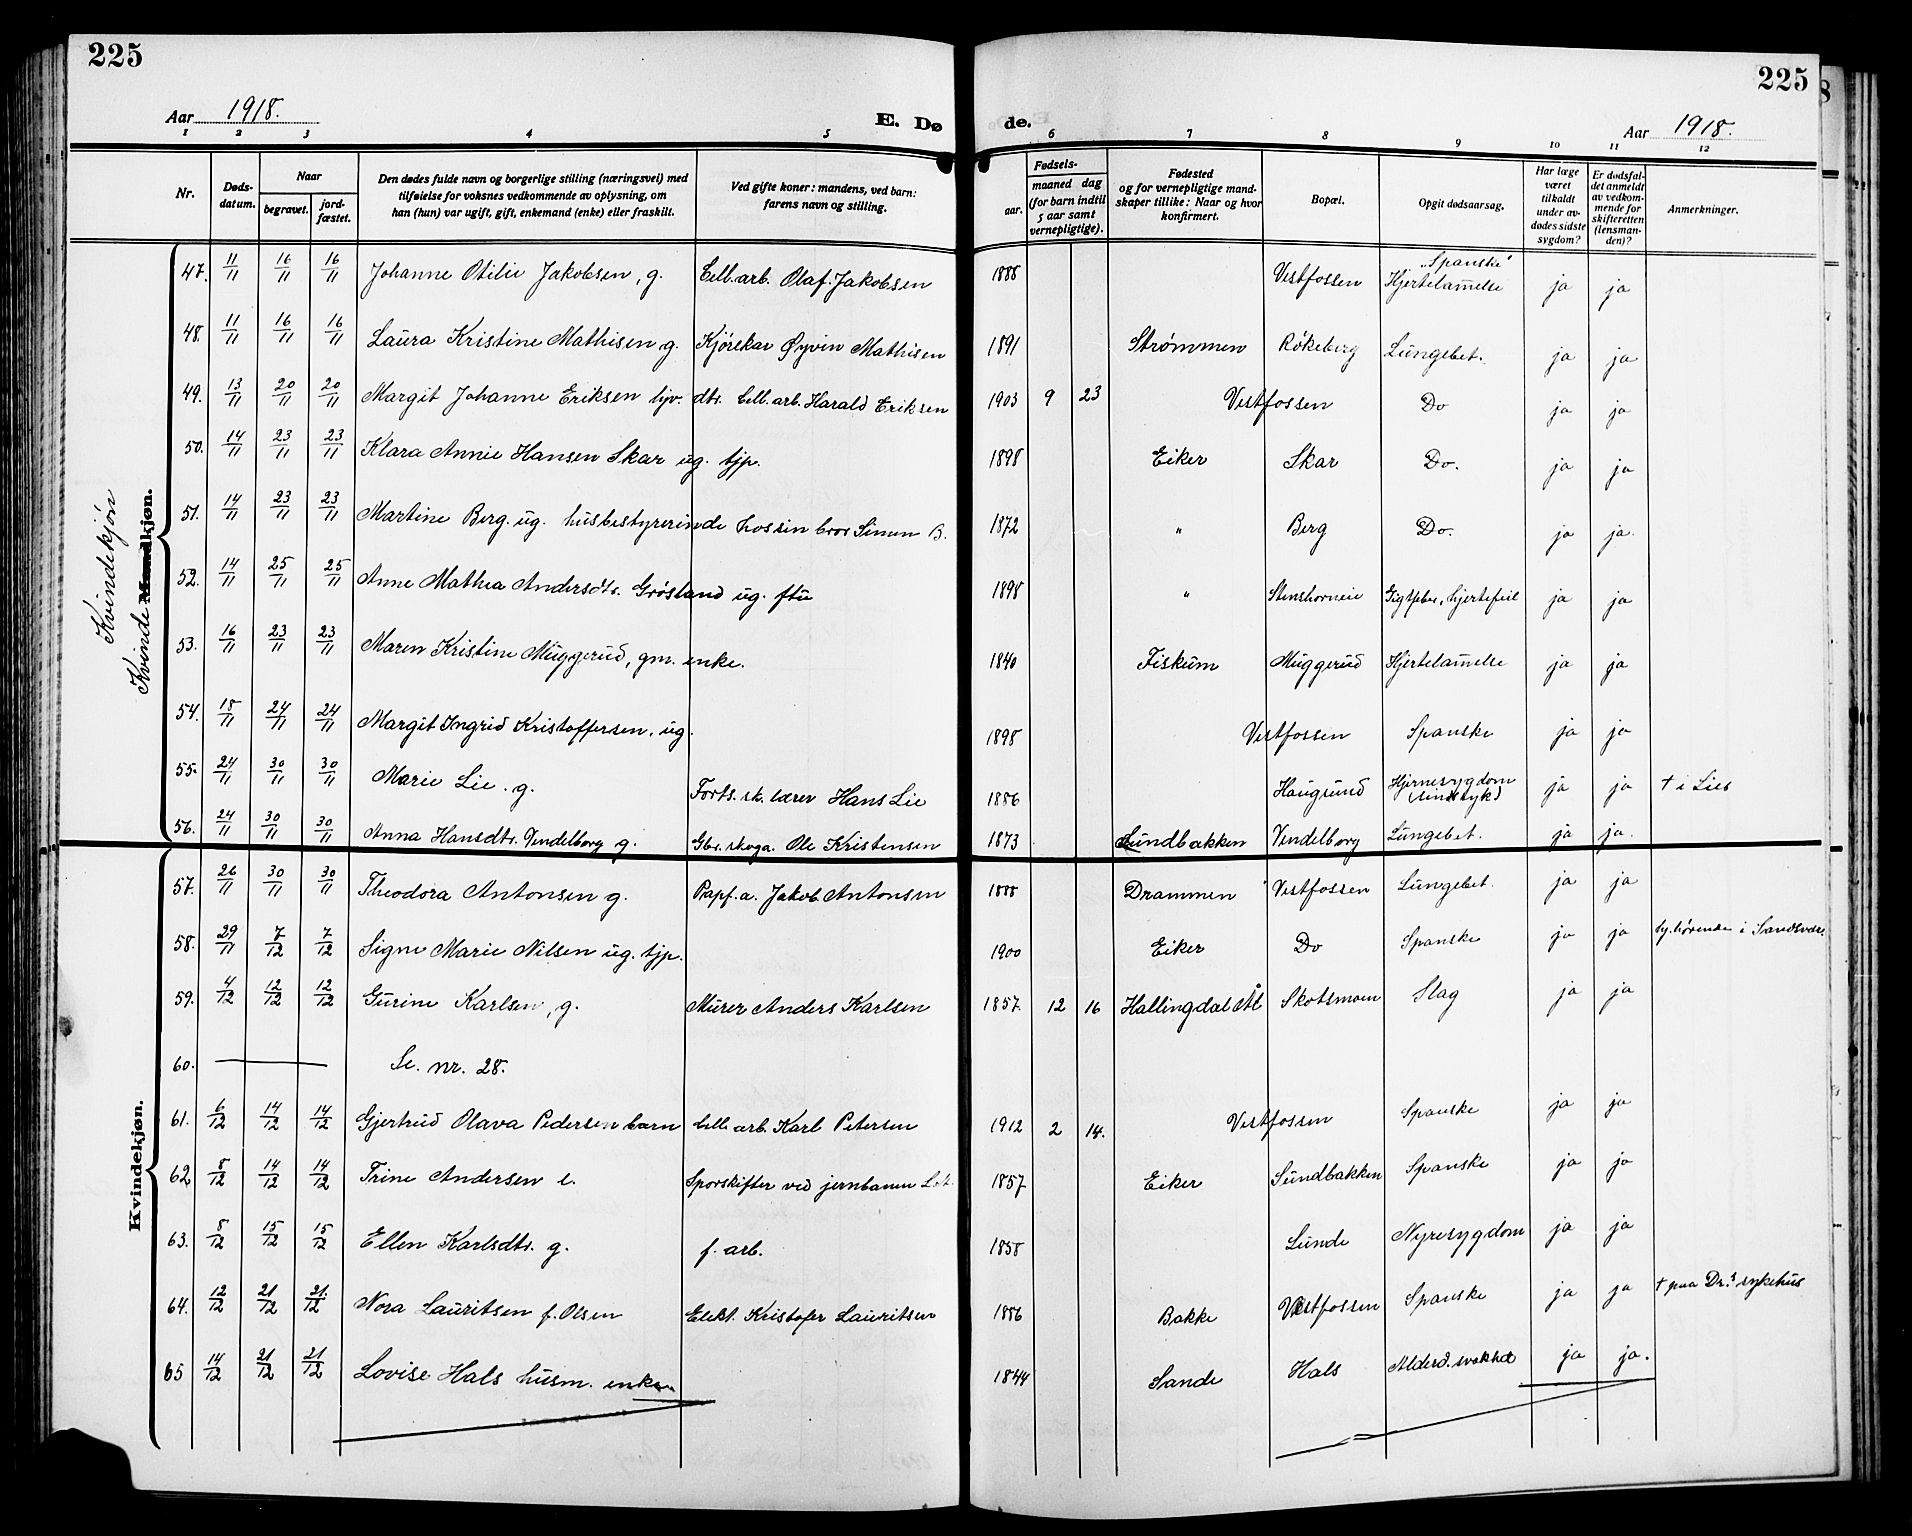 225
225
Aar 1918.
E. Dø
de.
Aar 1918.
1 2 3 4 5 6 7 8 9 10 11 12
Nr.
Døds-
datum.
Naar
begravet.
jord-
fæstet.
Den dødes fulde navn og borgerlige stilling (næringsvei) med
tilføielse for voksnes vedkommende av oplysning, om
han (hun) var ugift, gift, enkemand (enke) eller fraskilt.
Ved gifte koner: mandens, ved barn:
farens navn og stilling.
Fødsels-
aar.
maaned dag
(for barn indtil
5 aar samt
vernepligtige).
Fødested
og for vernepligtige mand-
skaper tillike: Naar og hvor
konfirmert.
Bopæl.
Opgit dødsaarsag.
Har læge
været
tilkaldt
under av-
dødes sidste
sygdom?
Er dødsfal-
det anmeldt
av vedkom-
mende for
skifteretten
(lensman-
den)?
Anmerkninger.
Kvindekjøn
Kvinde Mandkjøn.
47. 11/11 16/11 16/11 Johanne Otilie Jakobsen, g. Cell.arb. Olaf Jakobsen 1888 Vestfossen "Spanske" Hjertelammelse ja ja
48. 11/11 16/11 16/11 Laura Kristine Mathisen g. Kjørekar Øyvin Mathisen 1891 Strømmen Røkeberg Lungebet. ja ja
49. 13/11 20/11 20/11 Margit Johanne Eriksen hjv. dtr. Cell.arb. Harald Eriksen 1903 9 23 Vestfossen Do ja ja
50. 14/11 23/11 23/11 Klara Annie Hansen Skar ug. tjp. 1898 Eiker Skar Do. ja ja
51. 14/11 23/11 23/11 Martine Berg. ug. husbestyrerinde hos sin bror Simen B. 1872 " Berg Do. ja ja.
52. 14/11 25/11 25/11 Anne Mathea Andersdtr. Grøsland ug. ftu 1898 " Gigtfeber, hjertefeil ja ja
53. 16/11 23/11 23/11 Maren Kristine Muggerud, gm. enke. 1840 Fiskum Muggerud Hjertelammelse ja ja
54. 18/11 24/11 24/11 Margit Ingrid Kristoffersen, ug. 1898 Vestfossen Spanske ja ja
55. 24/11 30/11 30/11 Marie Lie. g. Forts.sk.lærer Hans Lie 1886 Haugsund Hjernesygdom (sindssyk) ja ja † i Lier
56. 24/11 30/11 30/11 Anna Hansdtr. Vendelborg g. Gbr. skoga. Ole Kristensen 1873 Sundbakken Vendelborg Lungebet. ja ja.
Kvindekjøn.
57. 26/11 30/11 30/11 Theodora Antonsen g. Papf.a. Jakob Antonsen 1888 Drammen Vestfossen Lungebet. ja ja
58. 29/11 7/12 7/12 Signe Marie Nilsen ug. tjp. 1900 Eiker Do Spanske ja ja hj.hørende i Sandsvær.
59. 4/12 12/12 12/12 Gurine Karlsen, g. Murer Anders Karlsen 1857. 12 16 Hallingdal Ål Skotsmoen Slag ja ja
60. Se. nr. 28.
61. 6/12 14/12 14/12 Gjertrud Olava Pedersen barn Cell.arb. Karl Petersen 1912 2 14. Vestfossen Spanske ja ja
62 8/12 14/12 14/12 Trine Andersen e. Sporskifter ved jernbanen 1857 Eiker Sundbakken Spanske ja ja
63. 8/12 15/12 15/12 Ellen Karlsdtr. g. f. arb. 1858 Lunde Nyresygdom ja ja
64. 12/12 21/12 21/12 Nora Lauritsen f. Olsen Elekt. Kristofer Lauritsen 1886 Bakke Vestfossen Spanske ja ja † paa Dr.s sykehus
65 14/12 21/12 21/12 Lovise Hals husm. enke 1844 Sande Hals Alderd.svakhet ja ja.